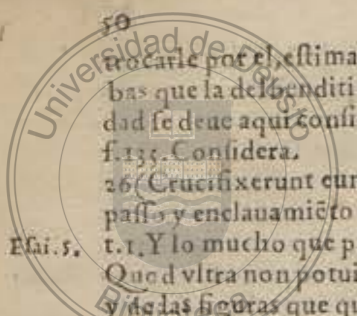 50
trocarle por el, estima
bas que la del benditi
dad se deue aqui consi
f.135. Considera.
26( Crucifixerunt eum
passo y enclauamiẽto
Esai. 5. t.1. Y lo mucho que p
Quod vltra non potui
y de las figuras que qu